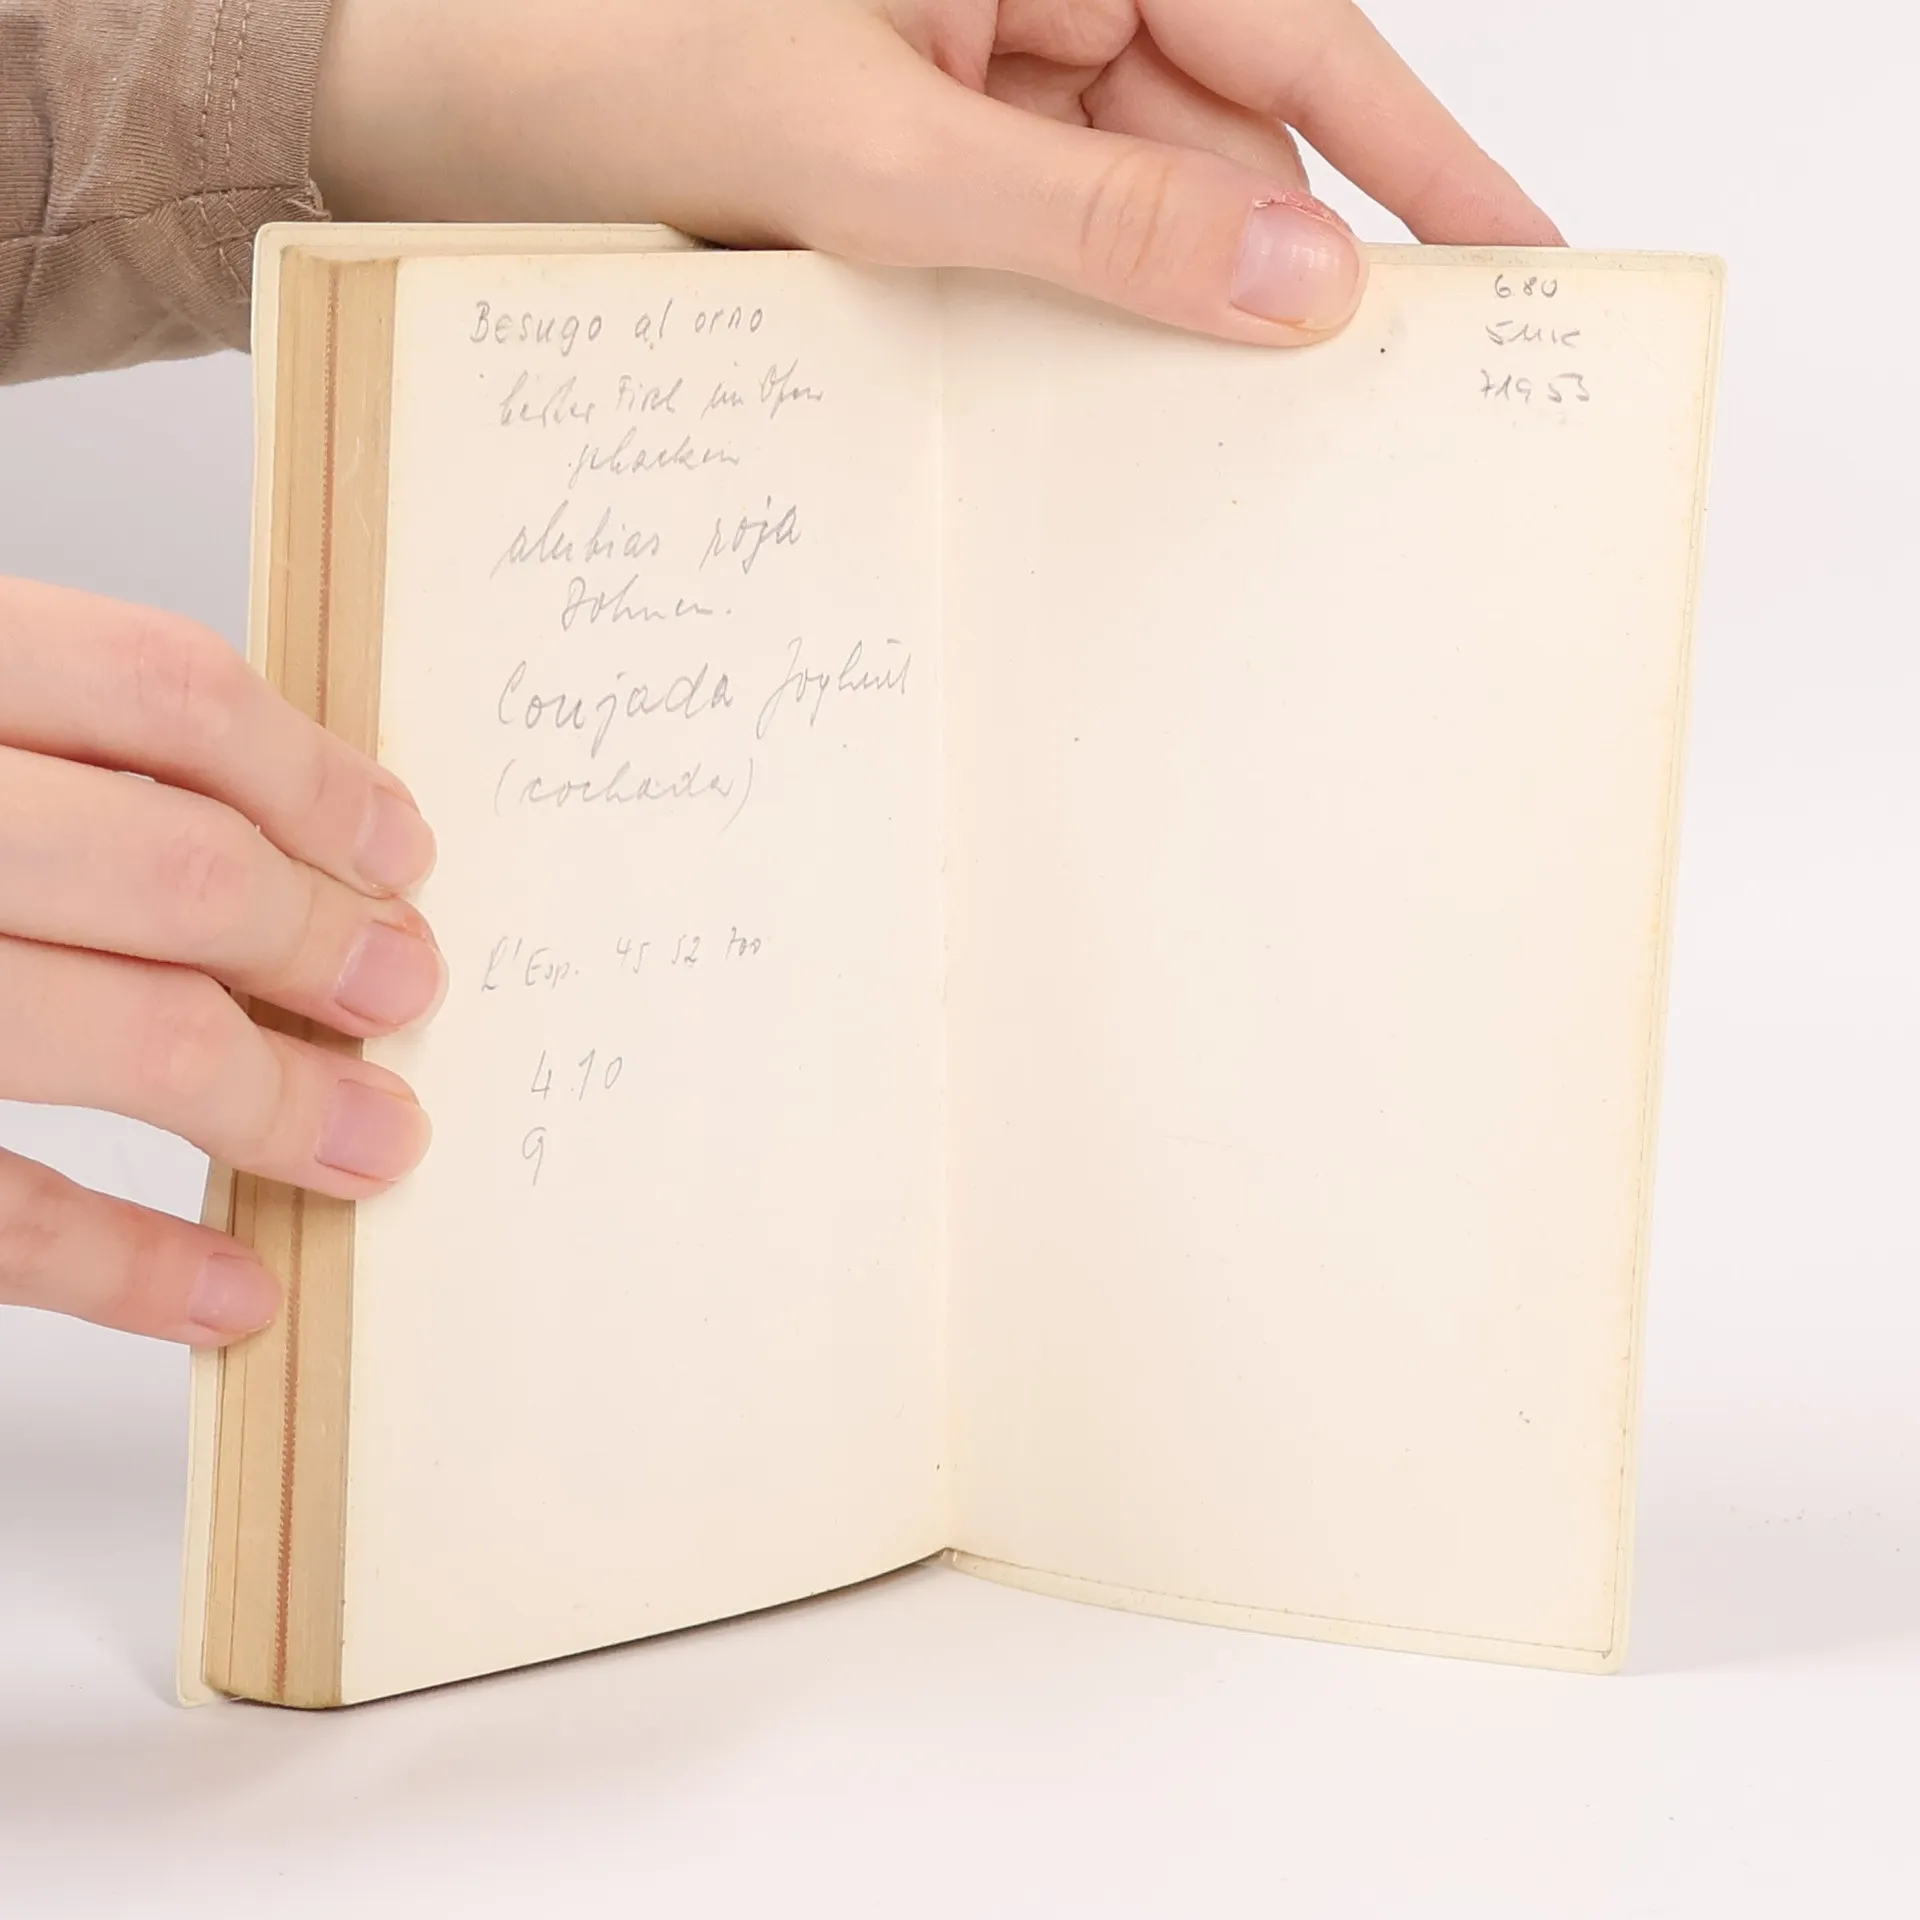 Besugo al orno
bester Fisch im Ofen
gebacken
alubias roja
Bohnen.
Coujada Joghurt
(cochada)
L'Esp. 45 52 700
4.10
9
680
71953